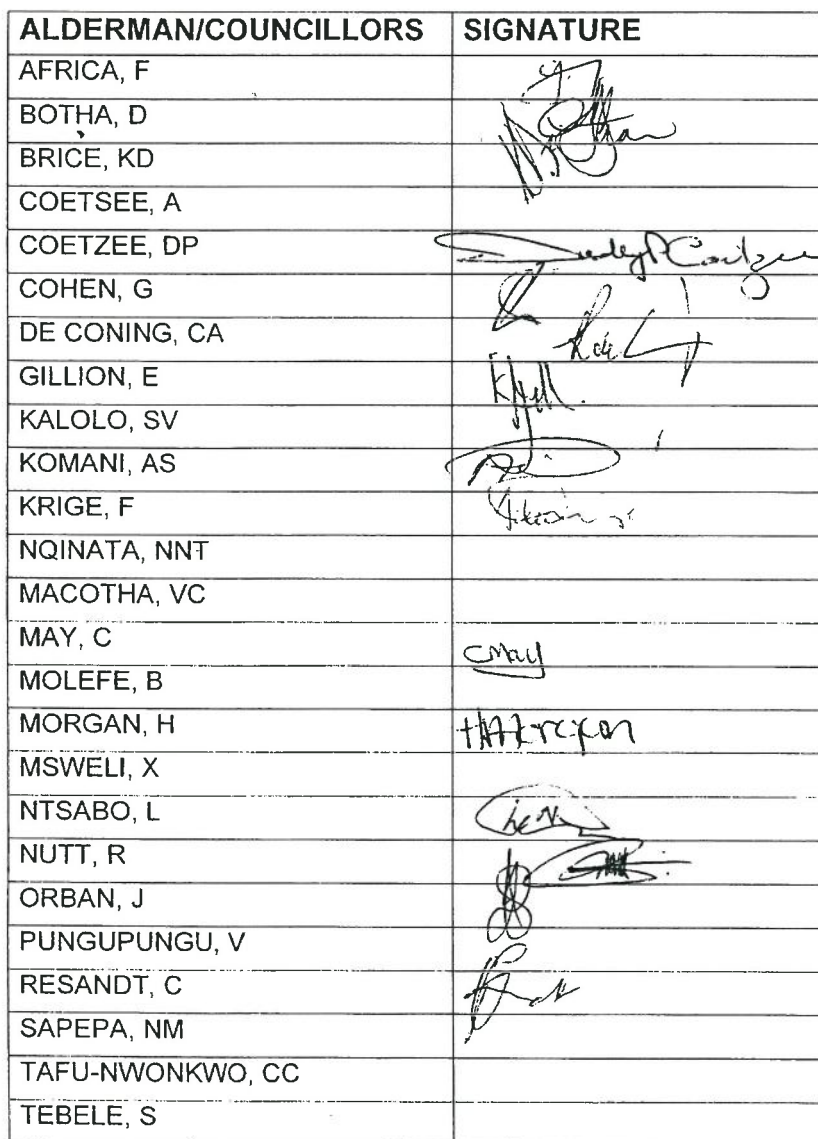 ALDERMAN/COUNCILLORS SIGNATURE
AFRICA, F
BOTHA, D
BRICE, KD
COETSEE, A
COETZEE, DP
COHEN, G
DE CONING, CA
GILLION, E
KALOLO, SV
KOMANI, AS
KRIGE, F
NQINATA, NNT
MACOTHA, VC
MAY, C CMay
MOLEFE, B
MORGAN, H
MSWELI, X
NTSABO, L
NUTT, R
ORBAN, J
PUNGUPUNGU, V
RESANDT, C
SAPEPA, NM
TAFU-NWONKWO, CC
TEBELE, S